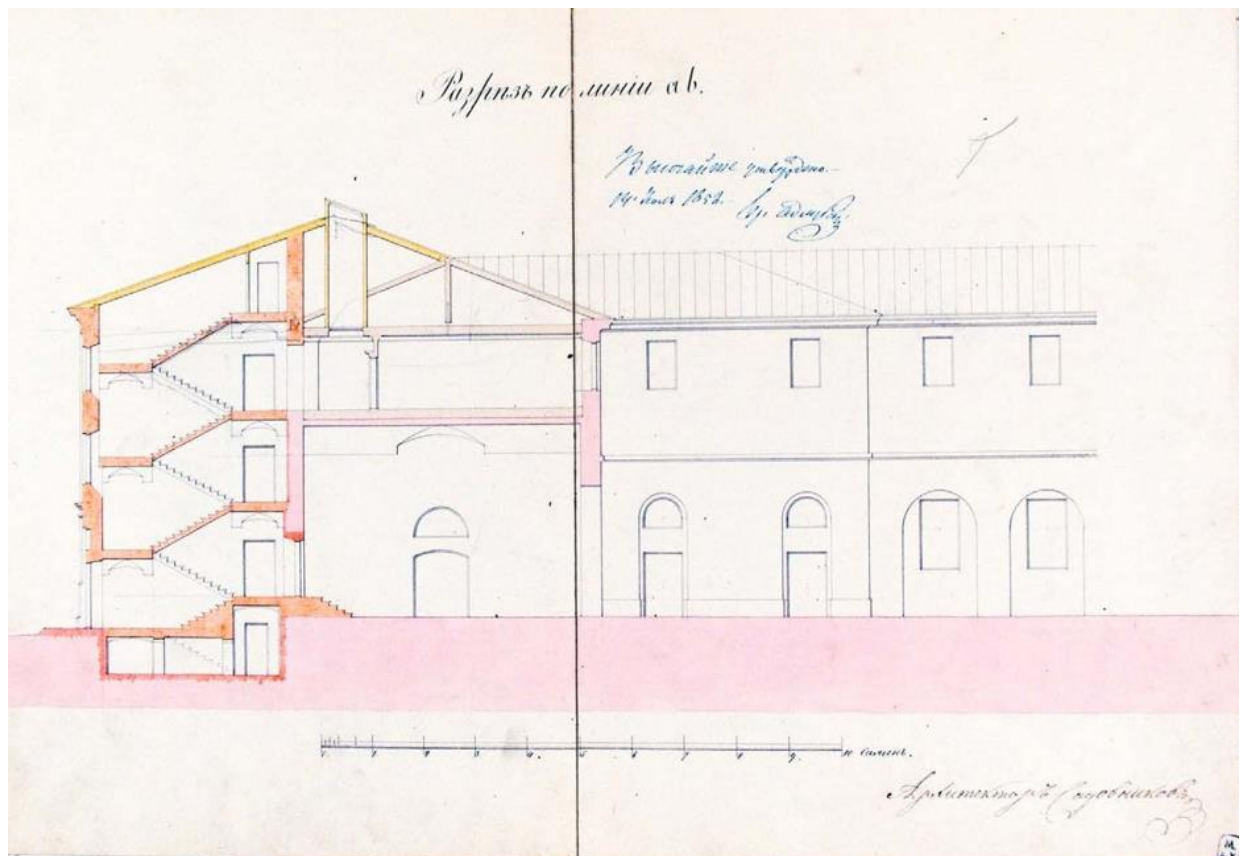 Разрѣзъ по линіи ab.
Высочайше утверждено.
14 1852.
1 2 3 4. 5 6 7 8 9. 10 Саженъ.
Архитекторъ Садовниковъ